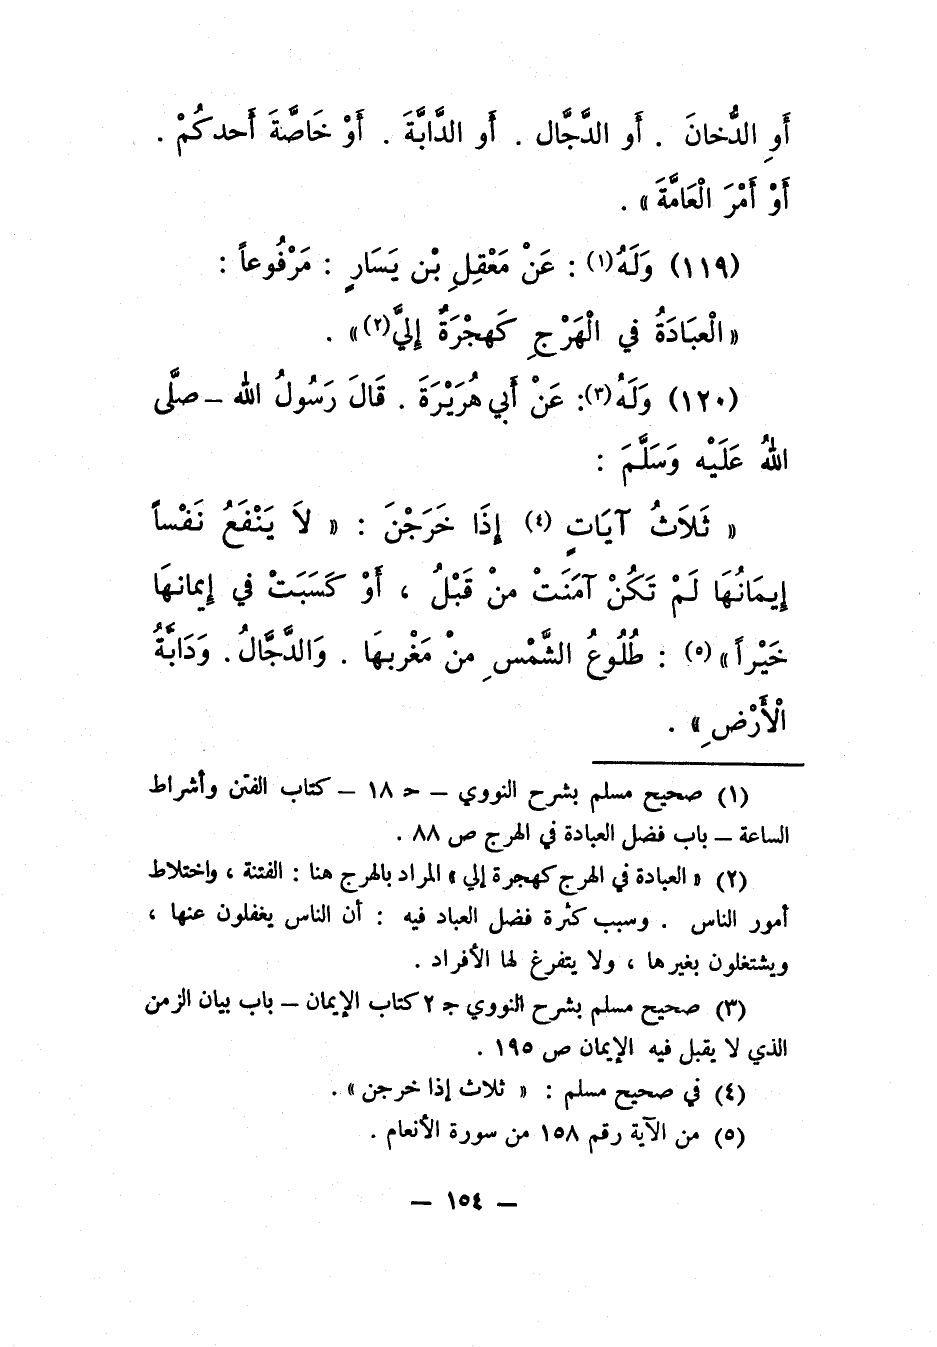 أَوِ الدُّخانَ . أَو الدَّجَّال . أَو الدَّابَّةَ . أَوْ خَاصَّةَ أَحدكُمْ .
أَوْ أَمْرَ الْعَامَّةَ » .
(١١٩) وَلَهُ(١) : عَنْ مَعْقِلِ بْن يَسَارٍ : مَرْفُوعاً :
« الْعبَادَةُ في الْهَرْجِ كَهجْرَةٌ إِليَّ(٢)» .
(١٢٠) وَلَهُ(٣): عَنْ أَبي هُرَيْرَةَ . قَالَ رَسُولُ الله ــ صلَّى
اللهُ عَلَيْه وَسَلَّمَ :
« ثَلاَثُ آيَاتٍ (٤) إِذَا خَرَجْنَ : « لاَ يَنْفَعُ نَفْساً
إِيمَانُهَا لَمْ تَكُنْ آمَنَتْ منْ قَبْلُ ، أَوْ كَسَبَتْ في إِيمَانهَا
خَيْراً »(٥) : طُلُوعُ الشَّمْسِ منْ مَغْربهَا . وَالدَّجَّالُ . وَدَابَّةُ
الْأَرْضِ » .
(١) صحيح مسلم بشرح النووي ــ حـ ١٨ ــ كتاب الفتن وأشراط
الساعة ــ باب فضل العبادة في الهرج ص ٨٨ .
(٢) « العبادة في الهرج كهجرة إلي » المراد بالهرج هنا : الفتنة ، واختلاط
أمور الناس . وسبب كثرة فضل العباد فيه : أن الناس يغفلون عنها ،
ويشتغلون بغيرها ، ولا يتفرغ لها الأفراد .
(٣) صحيح مسلم بشرح النووي جـ ٢ كتاب الإيمان ــ باب بيان الزمن
الذي لا يقبل فيه الإيمان ص ١٩٥ .
(٤) في صحيح مسلم : « ثلاث إذا خرجن » .
(٥) من الآية رقم ١٥٨ من سورة الأنعام .
ــ ١٥٤ ــ